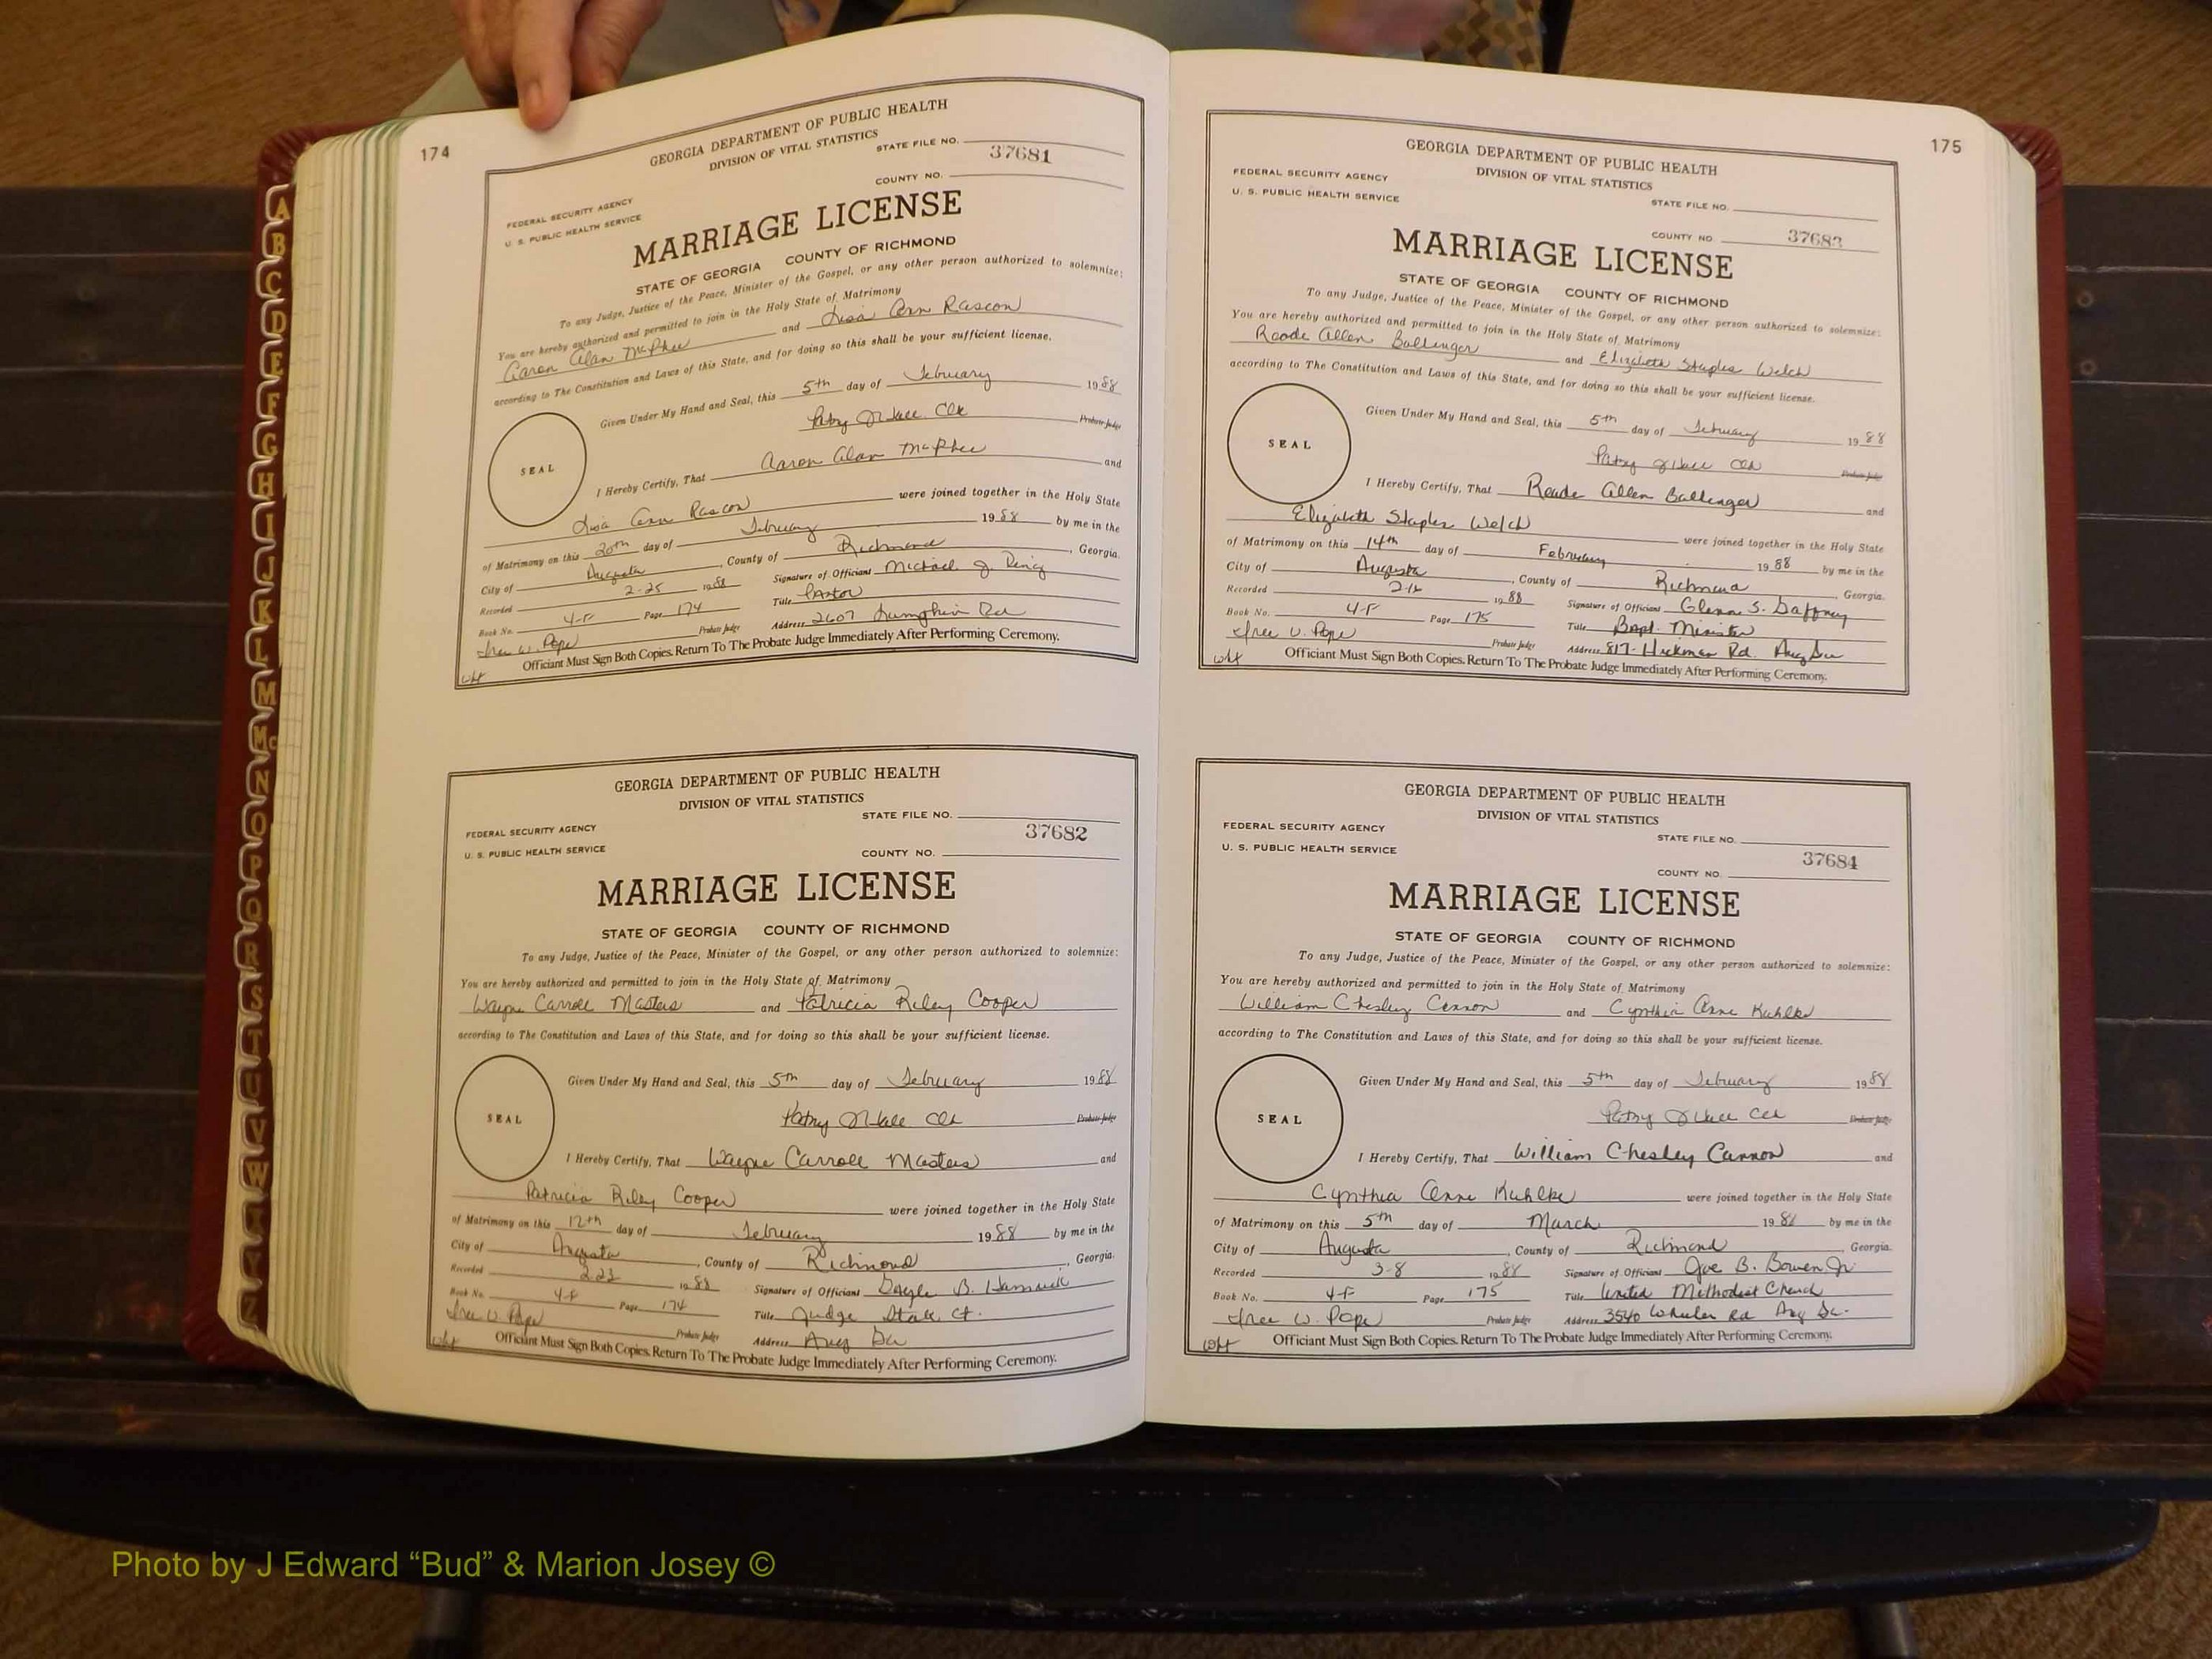 174
GEORGIA DEPARTMENT OF PUBLIC HEALTH
DIVISION OF VITAL STATISTICS
STATE FILE NO.
37681
COUNTY NO.
FEDERAL SECURITY AGENCY
U. S. PUBLIC HEALTH SERVICE
MARRIAGE LICENSE
STATE OF GEORGIA COUNTY OF RICHMOND
To any Judge, Justice of the Peace, Minister of the Gospel, or any other person authorized to solemnize:
You are hereby authorized and permitted to join in the Holy State of Matrimony
Aaron Alan McPhee and Lisa Ann Rascon
according to The Constitution and Laws of this State, and for doing so this shall be your sufficient license.
Given Under My Hand and Seal, this 5th day of February 1988
Patsy Clk Probate Judge
SEAL
I Hereby Certify, That Aaron Alan McPhee and
Lisa Ann Rascon were joined together in the Holy State
of Matrimony on this 20th day of February 1988 by me in the
City of Augusta, County of Richmond, Georgia.
Recorded 2-25 1988 Signature of Officiant Michael J.
Book No. 4-F Page 174 Title Pastor
W. Pope Probate Judge Address 2607 Lumpkin Rd
Officiant Must Sign Both Copies. Return To The Probate Judge Immediately After Performing Ceremony.
GEORGIA DEPARTMENT OF PUBLIC HEALTH
DIVISION OF VITAL STATISTICS
STATE FILE NO.
37682
FEDERAL SECURITY AGENCY
U. S. PUBLIC HEALTH SERVICE
COUNTY NO.
MARRIAGE LICENSE
STATE OF GEORGIA COUNTY OF RICHMOND
To any Judge, Justice of the Peace, Minister of the Gospel, or any other person authorized to solemnize:
You are hereby authorized and permitted to join in the Holy State of Matrimony
Wayne Carroll Masters and Patricia Riley Cooper
according to The Constitution and Laws of this State, and for doing so this shall be your sufficient license.
Given Under My Hand and Seal, this 5th day of February 1988
Patsy Clk Probate Judge
SEAL
I Hereby Certify, That Wayne Carroll Masters and
Patricia Riley Cooper were joined together in the Holy State
of Matrimony on this 12th day of February 1988 by me in the
City of Augusta, County of Richmond, Georgia.
Recorded 2-23 1988 Signature of Officiant Gayle B. Hamrick
Book No. 4-F Page 174 Title Judge State Ct.
W. Pope Probate Judge Address Aug Ga
Officiant Must Sign Both Copies. Return To The Probate Judge Immediately After Performing Ceremony.
175
GEORGIA DEPARTMENT OF PUBLIC HEALTH
DIVISION OF VITAL STATISTICS
FEDERAL SECURITY AGENCY
U. S. PUBLIC HEALTH SERVICE
STATE FILE NO.
COUNTY NO. 37683
MARRIAGE LICENSE
STATE OF GEORGIA COUNTY OF RICHMOND
To any Judge, Justice of the Peace, Minister of the Gospel, or any other person authorized to solemnize:
You are hereby authorized and permitted to join in the Holy State of Matrimony
Reade Allen Ballenger and Elizabeth Staples Welch
according to The Constitution and Laws of this State, and for doing so this shall be your sufficient license.
Given Under My Hand and Seal, this 5th day of February 1988
Patsy Clk Probate Judge
SEAL
I Hereby Certify, That Reade Allen Ballenger and
Elizabeth Staples Welch were joined together in the Holy State
of Matrimony on this 14th day of February 1988 by me in the
City of Augusta, County of Richmond, Georgia.
Recorded 2-16 1988 Signature of Officiant Glenn S. Gaffney
Book No. 4-F Page 175 Title Bapt. Minister
W. Pope Probate Judge Address 817- Hickman Rd. Aug Ga
Officiant Must Sign Both Copies. Return To The Probate Judge Immediately After Performing Ceremony.
GEORGIA DEPARTMENT OF PUBLIC HEALTH
DIVISION OF VITAL STATISTICS
FEDERAL SECURITY AGENCY
U. S. PUBLIC HEALTH SERVICE
STATE FILE NO.
37684
COUNTY NO.
MARRIAGE LICENSE
STATE OF GEORGIA COUNTY OF RICHMOND
To any Judge, Justice of the Peace, Minister of the Gospel, or any other person authorized to solemnize:
You are hereby authorized and permitted to join in the Holy State of Matrimony
William Chesley Cannon and Cynthia Anne Kuhlke
according to The Constitution and Laws of this State, and for doing so this shall be your sufficient license.
Given Under My Hand and Seal, this 5th day of February 1988
Patsy Clk Probate Judge
SEAL
I Hereby Certify, That William Chesley Cannon and
Cynthia Anne Kuhlke were joined together in the Holy State
of Matrimony on this 5th day of March 1988 by me in the
City of Augusta, County of Richmond, Georgia.
Recorded 3-8 1988 Signature of Officiant Joe B. Bowen, Jr
Book No. 4-F Page 175 Title United Methodist Church
W. Pope Probate Judge Address 3540 Wheeler Rd Aug Ga.
Officiant Must Sign Both Copies. Return To The Probate Judge Immediately After Performing Ceremony.
A
B
C
D
E
F
G
H
I
J
K
L
M
Mc
N
O
P
Q
R
S
T
U
V
W
X
Y
Z
Photo by J Edward “Bud” & Marion Josey ©